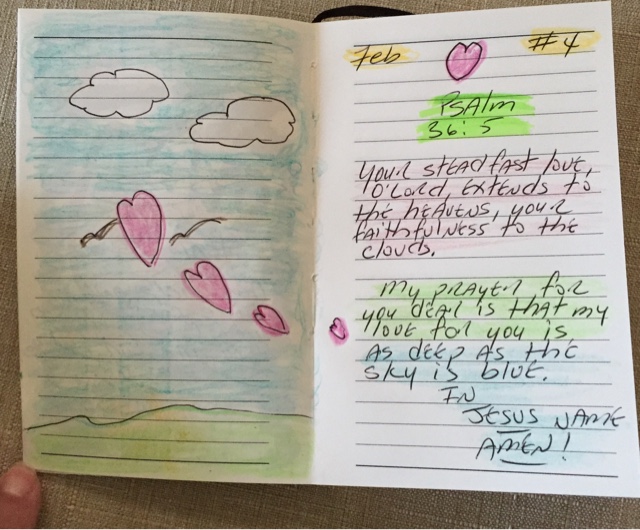 Feb #4
PSAlm
36:5
your steadfast love,
O'Lord, extends to
the heavens, your
faithfulness to the
clouds.
my prayer for
you dear is that my
love for you is
As deep As the
sky is blue.
IN
JESUS NAME
AMEN!